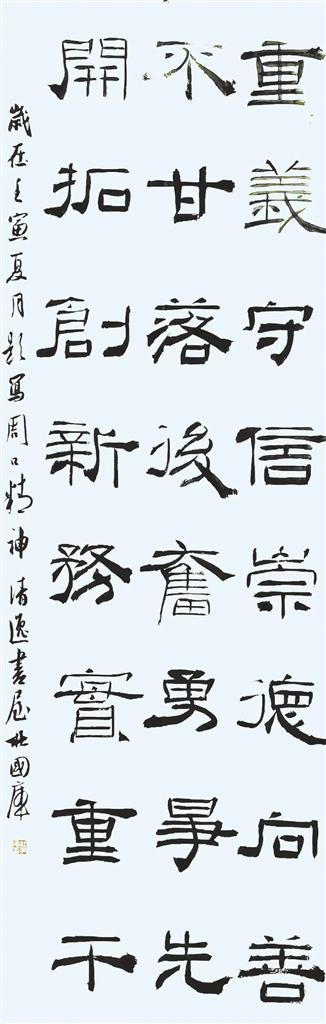 重義守信崇德向善
不甘落後奮勇爭先
開拓創新務實重干
歲在壬寅夏月題寫周口精神清逸書屋 國庫